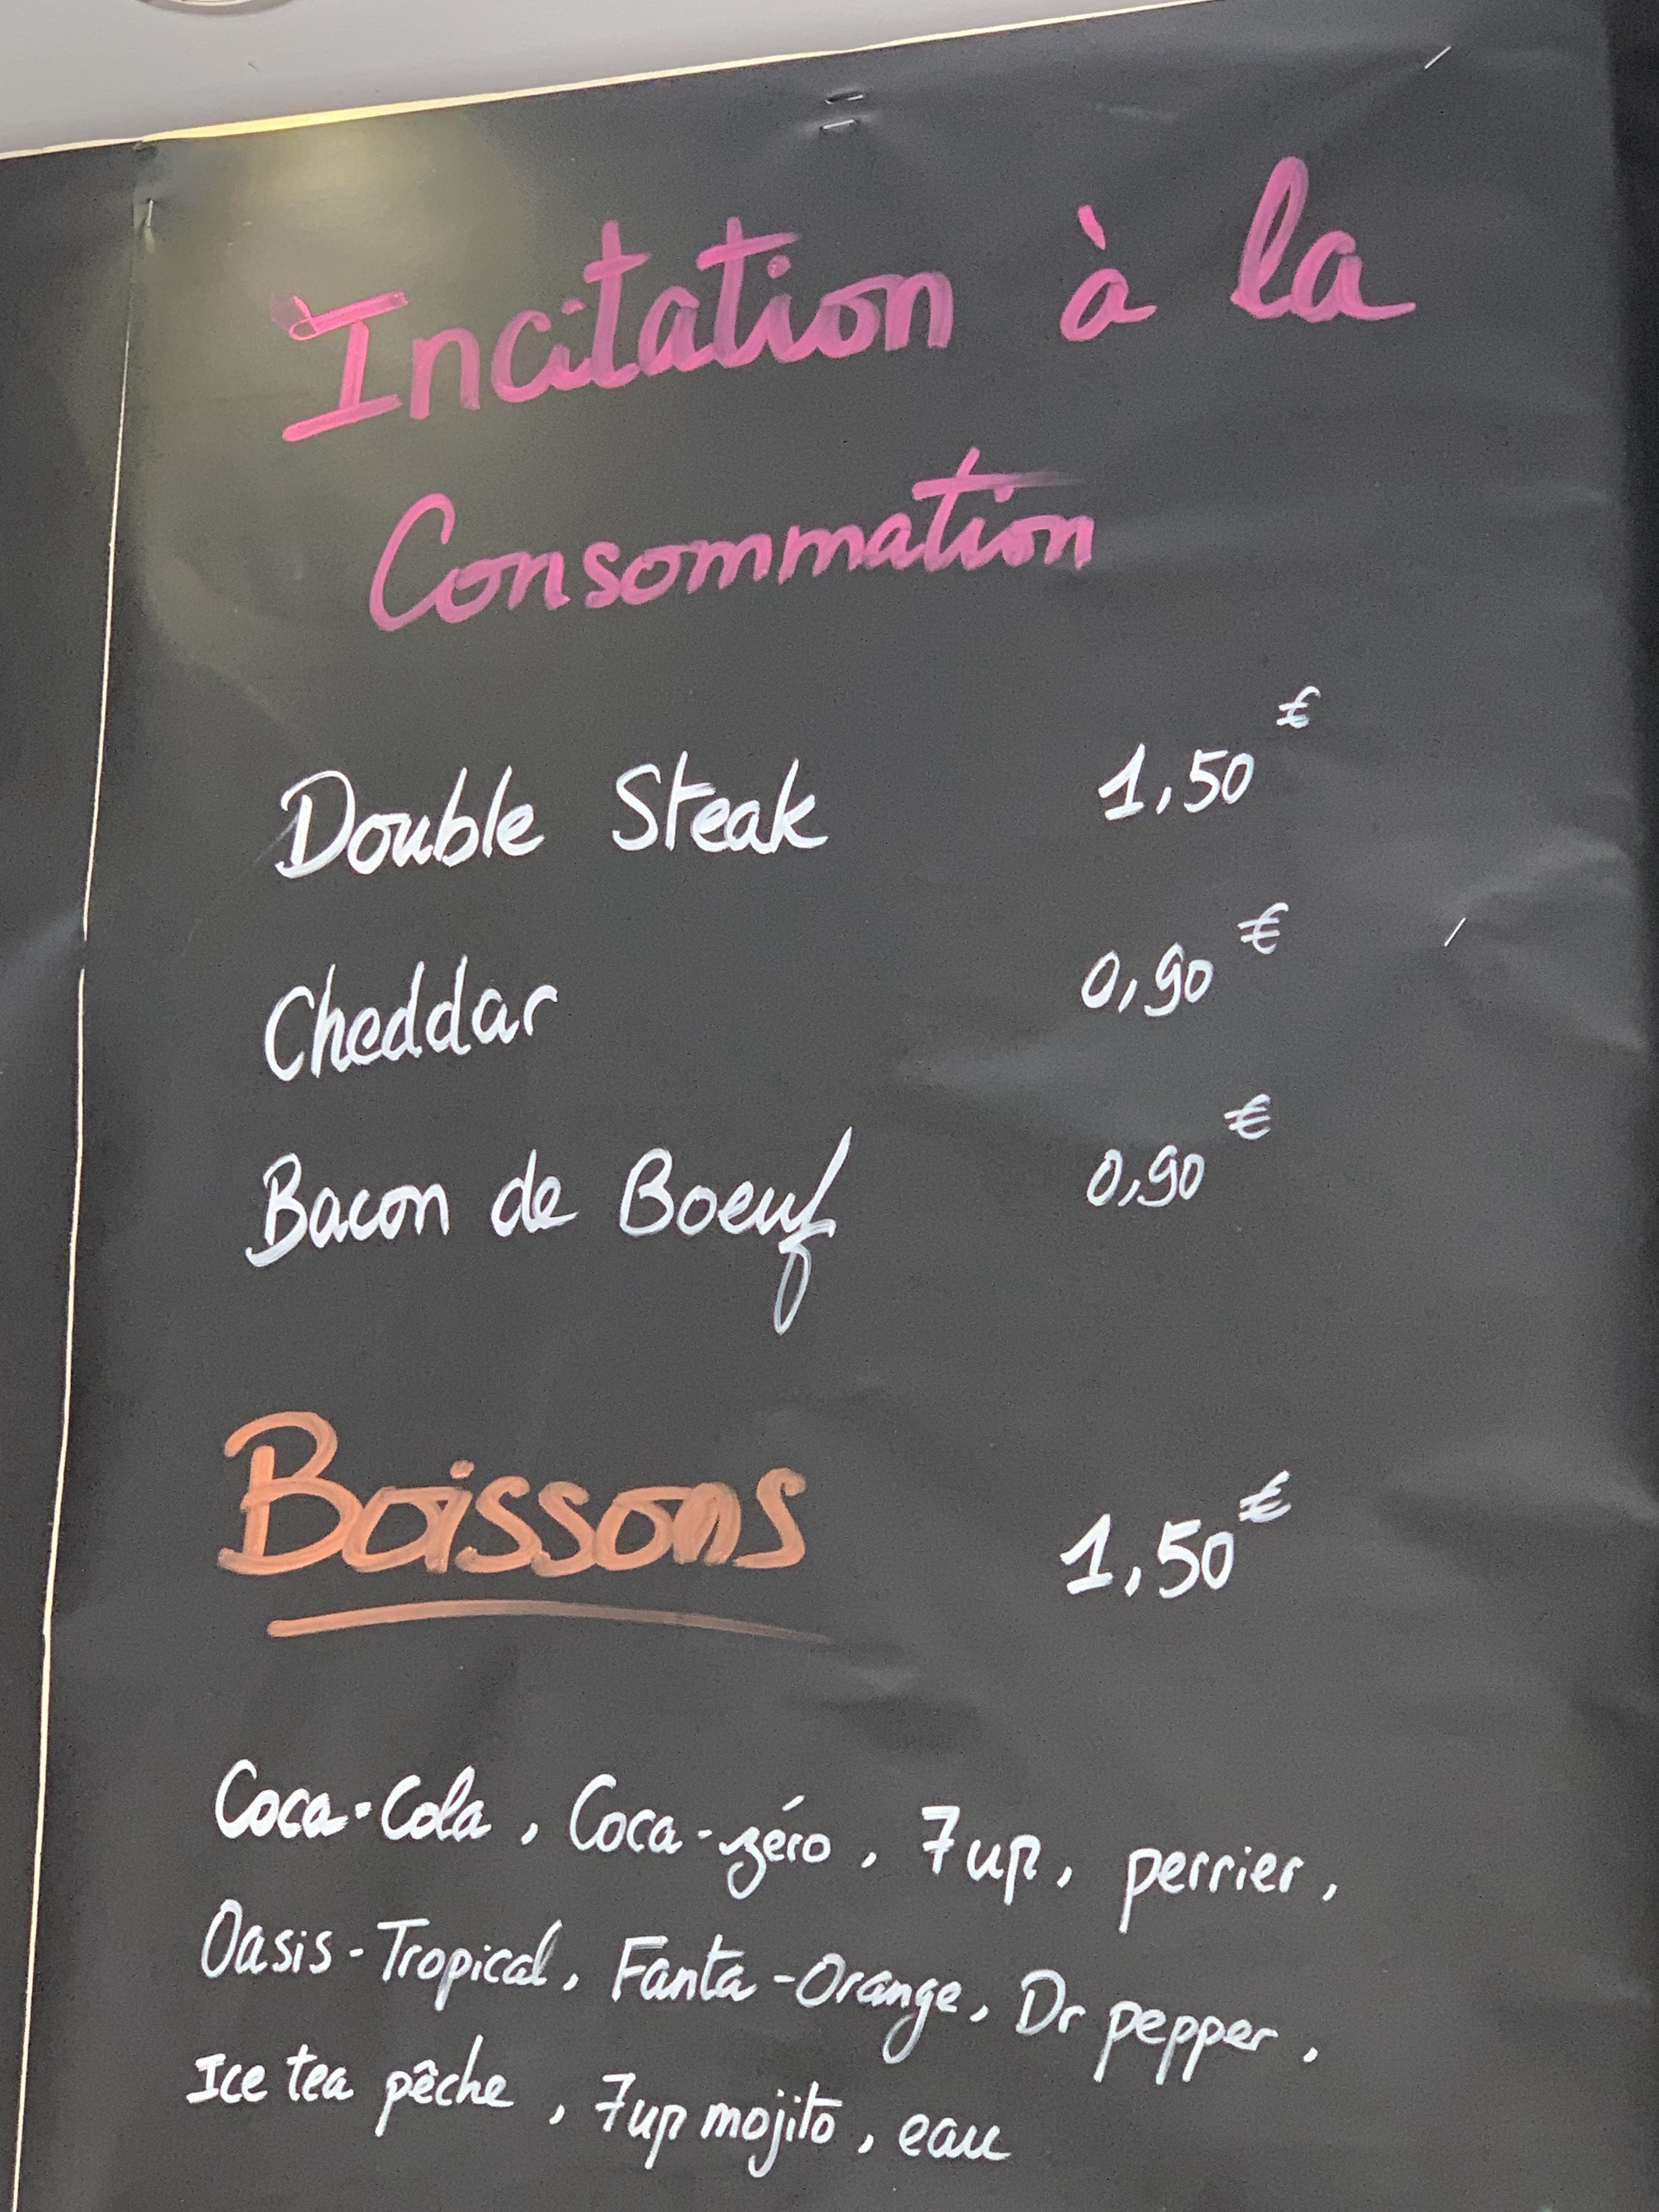 Incitation à la
Consommation
Double Steak 1,50 €
Cheddar 0,90 €
Bacon de Boeuf 0,90 €
Boissons 1,50 €
Coca-Cola, Coca-zéro, 7up, perrier,
Oasis-Tropical, Fanta-Orange, Dr pepper,
Ice tea pêche, 7up mojito, eau